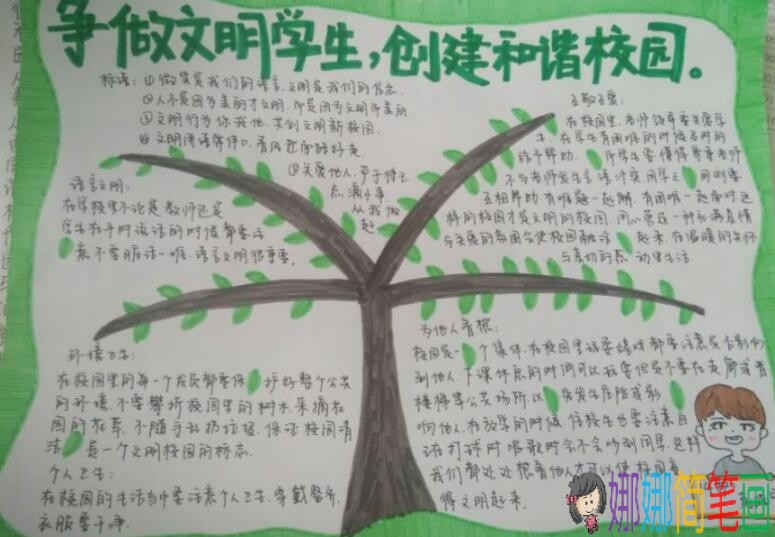 争做文明学生，创建和谐校园。
标语：①微笑是我们的语言，文明是我们的信念
②人不是因为美丽才文明，而是因为文明而美丽
③文明行为你我他，共创文明新校园
④文明用语常伴口，春风迎面
⑤关爱他人，严于律己
点滴小事
从我做
起
语言文明：
在学校里不论是教师还是
学生在平时谈话的时候都要注
意不要脏话一堆，语言文明很重要。
互敬互爱：
在校园里，老师领导要关爱学
生，在学生有困难的时候及时的
给予帮助，而学生要懂得尊重老师
不与老师发生言语冲突同学之间则要
互相帮助，有难题一起解，有困难一起面对这
样的校园才是文明的校园，用心营造一种和满友情
与关爱的氛围会使校园融洽起来，在温暖的关怀
与亲切的感动里生活
环境卫生：
在校园里的每一个成员都要保护好整个公共
的环境，不要攀折校园里的树木，采摘花
园的花草，不随手乱扔垃圾，保证校园清
洁是一个文明校园的标志。
个人卫生：
在校园的生活当中要注意个人卫生，穿戴整齐，
衣服要干净。
为他人着想：
校园是一个集体，在校园里玩耍嬉戏都要注意是否影响
到他人，下课休息的时间可以玩耍但是不要在走廊或者
楼梯等公共场所，以免发生危险或影
响他人，在放学的时候，住校生也要注意自
己在打球时唱歌时会不会吵到同学，这样
我们都处处想着他人才可以使校园变
得文明起来。
娜娜简笔画